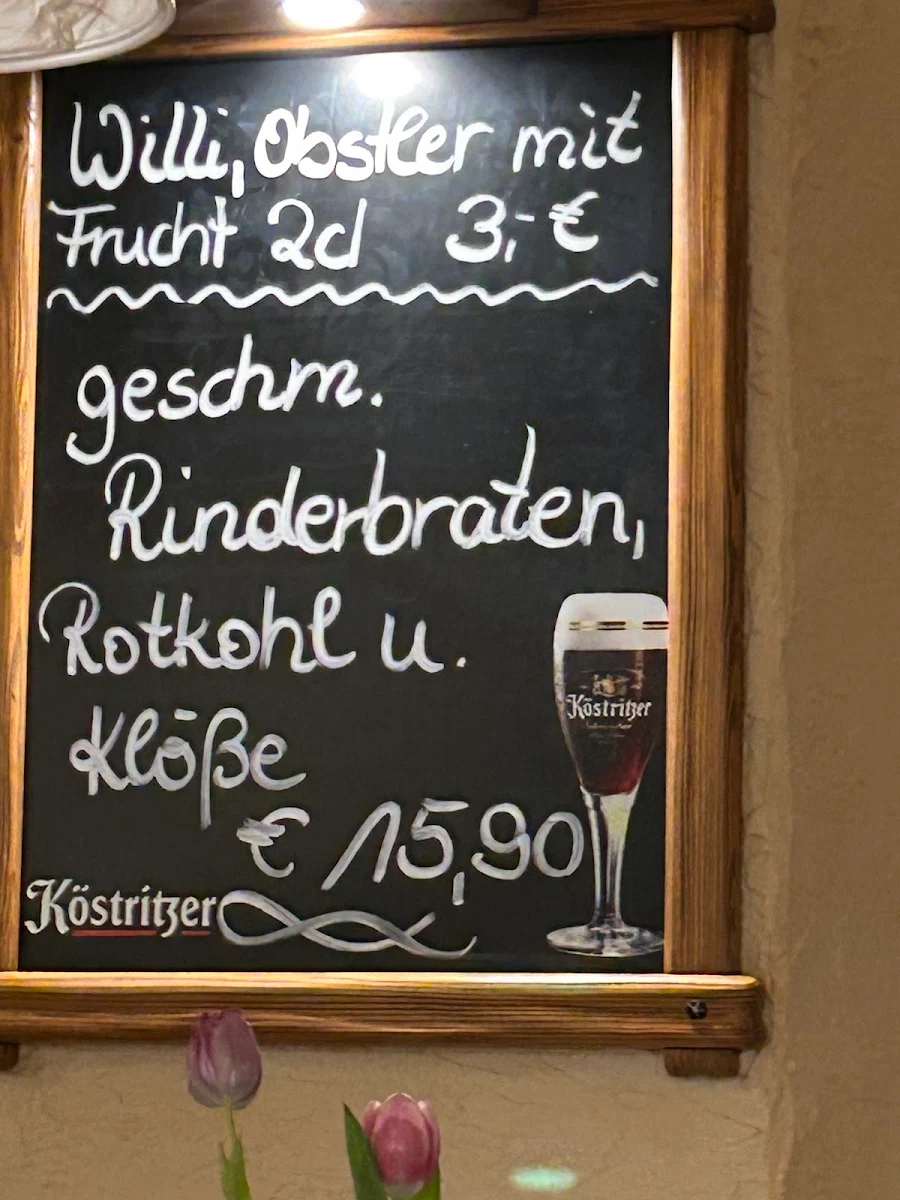 Willi, Obstler mit
Frucht 2cl 3,-€
geschm.
Rinderbraten,
Rotkohl u.
Klöße
€ 15,90
Köstritzer
Köstritzer